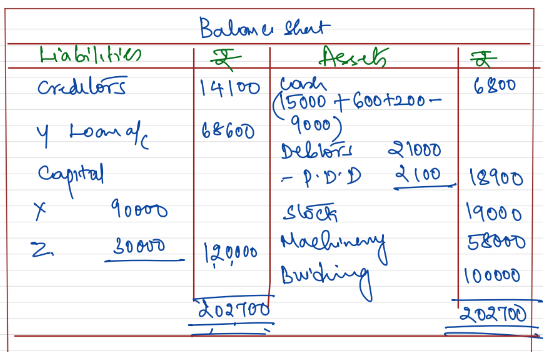 Balance Sheet
Liabilities ₹ Assets ₹
Creditors 14100 Cash 6800
(15000 + 600+200-
9000)
Y Loan a/c 68600
Debtors 21000
Capital - P.D.D 2100 18900
X 90000 Stock 19000
Z 30000 120000 Machinery 58000
Building 100000
202700 202700